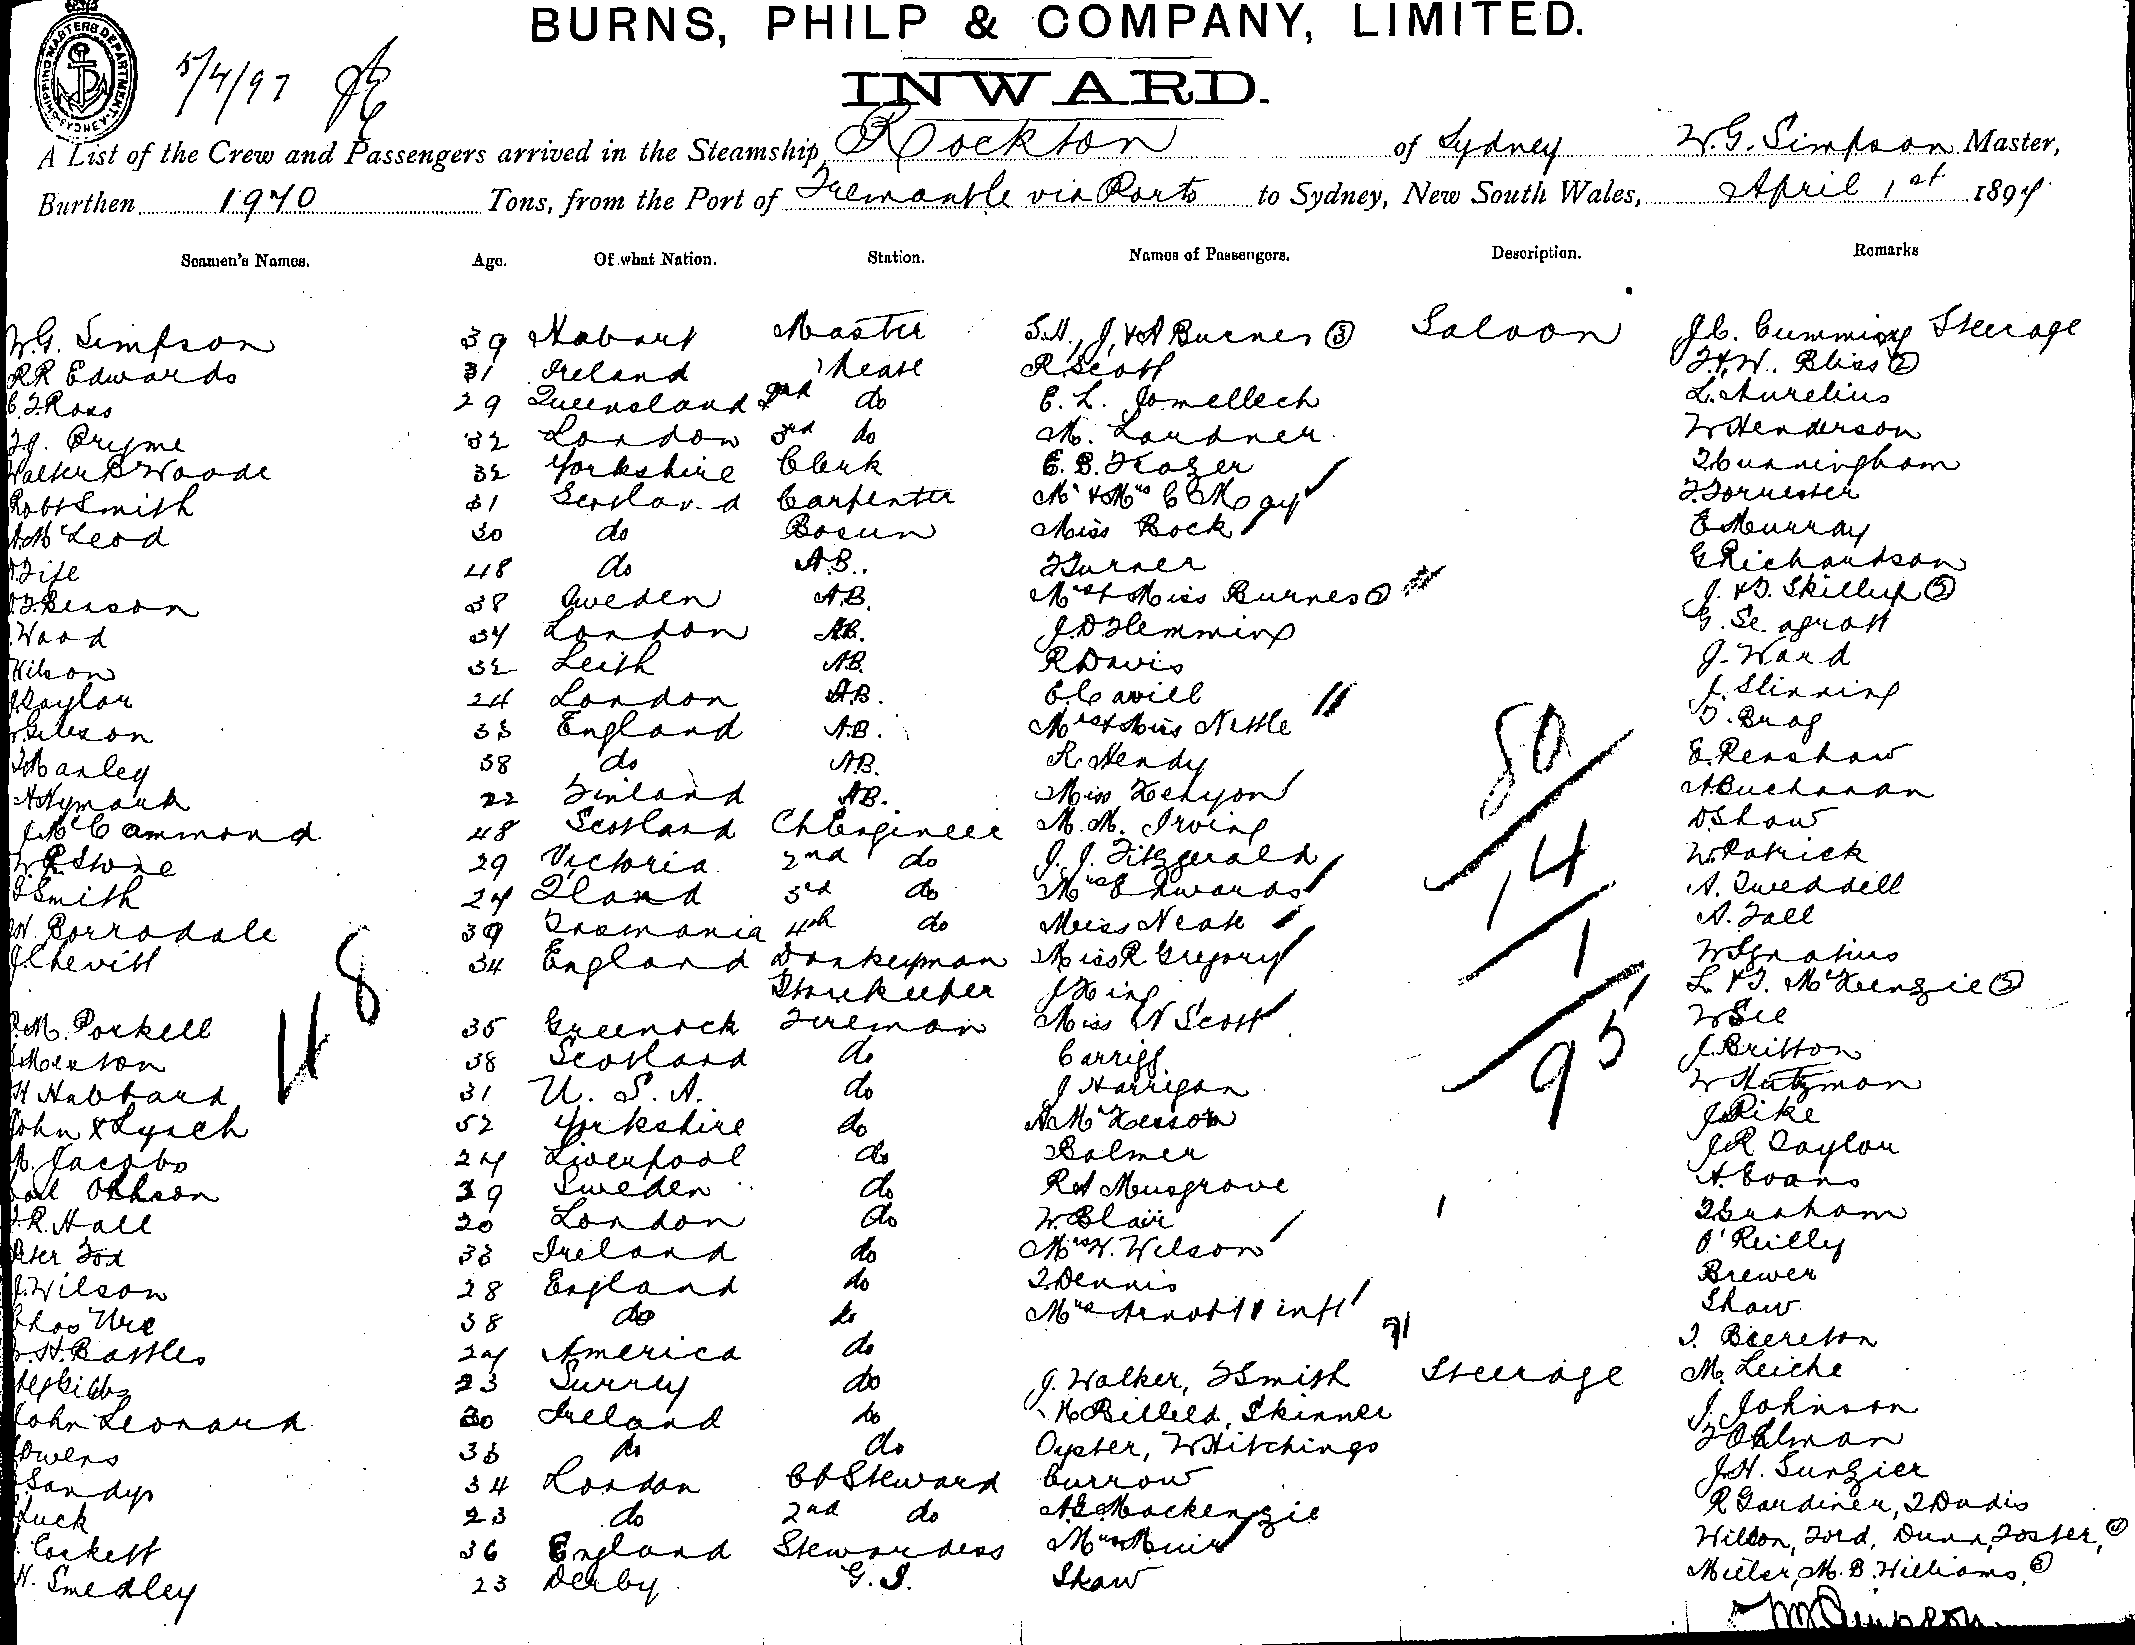 BURNS, PHILP & COMPANY, LIMITED.
SHIPPING MASTERS DEPARTMENT SYDNEY
5/4/97
INWARD.
A List of the Crew and Passengers arrived in the Steamship Rockton of Sydney W.G. Simpson Master,
Burthen 1970 Tons, from the Port of Fremantle via Ports to Sydney, New South Wales, April 1st 1897
Seamen's Names. Age. Of what Nation. Station. Names of Passengers. Description. Remarks
W.G. Simpson 39 Hobart Master S.H., J, & A Burnes ③ Saloon J.C. Cumming Steerage
RR Edwards 31 Ireland Mate R Scott F & W. Bliss ②
C.F Ross 29 Queensland 2nd do E. L. L. Aurelius
Pryme 32 London 3rd do M. Lardner W Henderson
Walter Woode 32 Yorkshire Clerk E. B. Frazer Cunningham
Robt Smith 31 Scotland Carpenter Mr & Mrs C McGay F Forrester
A McLeod 30 do Bosun Miss Rock E Murray
Fife 48 do A.B. Turner G Richardson
38 Sweden A.B. Mrs & Miss Burnes ② J. & D. Skillup ②
Wood 34 London AB. J D Flemming G. Seagrott
Wilson 32 Leith AB. R Davis J. Ward
Taylor 24 London A.B. E Cavill J. Slinning
Gibson 33 England A.B. Mrs & Miss Nettle
Manley 38 do A.B. R. Hendy E. Renshaw
A Nymark 22 Finland AB. Miss Kenyon A Buchanan
J McCammond 48 Scotland Ch Engineer M. M. Irving D Shaw
W. R. Stone 29 Victoria 2nd do J. J. Fitzgerald W Patrick
Smith 24 Qland 3rd do Mrs Edwards A. Tweddell
W. Borrodale 39 Tasmania 4th do Miss Neak A. Fall
J. Chevitt 34 England Donkeyman Miss R Gregory W Ignatius
Storekeeper J King L. & F. McKenzie ②
M. Porkell 35 Greenock Fireman Miss N Scott W See
Meston 38 Scotland do Carrigg J. Britton
H Hubbard 31 U. S. A. do J Harrigan W Hutzman
John Lynch 52 Yorkshire do A McKesson J Pike
A. Jacobs 24 Liverpool do Balmer J R Taylor
39 Sweden do R A Musgrove A. Evans
R. Hall 20 London do W Blair Graham
Peter Fox 33 Ireland do Mrs W. Wilson O'Reilly
J. Wilson 28 England do Dennis Brewer
Chas Ure 38 do do Mrs Arnott & inft Shaw
H. Battles 24 America do Beereton
23 Surrey do J. Walker, Smith Steerage M. Leiche
John Leonard 30 Ireland do Skinner J. Johnson
Owens 33 do do Oyster, W Hitchings Ohlman
Sandys 34 London Ch Steward Currow J.H. Surgier
Tuck 23 do 2nd do A G Mackenzie R Gardiner, Dadis
Cockett 36 England Stewardess Mrs Muir Wilson, Ford, Dunn, Foster, ④
H. Smedley 23 Derby G. S. Shaw Miller, M. B. Williams, ③
48
80
14
1
95